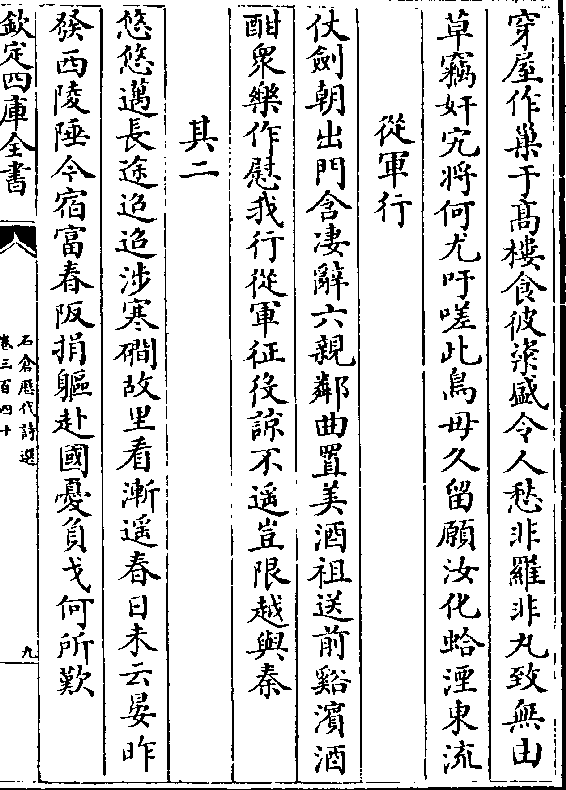 穿屋作巢于髙樓食彼粢盛令人愁非羅非丸致無由
草竊奸宄將何尤吁嗟此鳥毋久留願汝化蛤湮東流
從軍行
仗劍朝出門含凄辭六親鄰曲置美酒祖送前谿濱酒
酣衆樂作慰我行從軍征役諒不遥豈限越與秦
其二
悠悠邁長途迢迢涉寒磵故里看漸遥春日未云晏昨
發西陵陲今宿富春阪捐軀赴國憂負戈何所歎
欽定四庫全書
石倉歴代詩選
卷三百四十
九